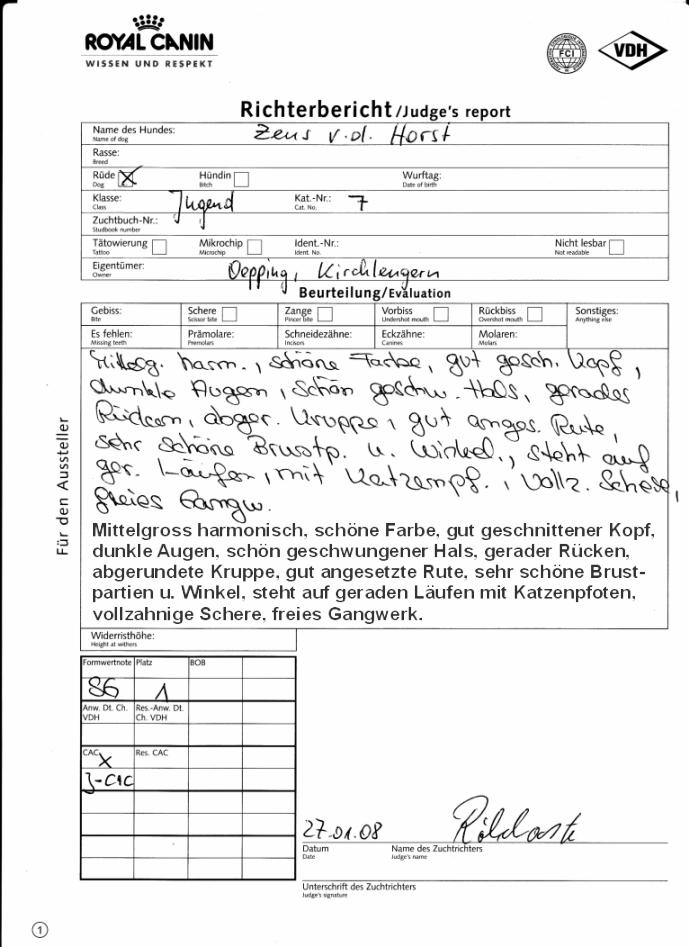 ROYAL CANIN
WISSEN UND RESPEKT
FCI
VDH
Richterbericht/Judge's report
Name des Hundes: Zeus v.d. Horst
Name of dog
Rasse:
Breed
Rüde X Hündin Wurftag:
Dog Bitch Date of birth
Klasse: Jugend Kat.-Nr.: 7
Class Cat. No.
Zuchtbuch-Nr.:
Studbook number
Tätowierung Mikrochip Ident.-Nr.: Nicht lesbar
Tattoo Microchip Ident. No. Not readable
Eigentümer: Oepping, Kirchlengern
Owner
Beurteilung/Evaluation
Gebiss: Schere Zange Vorbiss Rückbiss Sonstiges:
Bite Scissor bite Pincer bite Undershot mouth Overshot mouth Anything else
Es fehlen: Prämolare: Schneidezähne: Eckzähne: Molaren:
Missing teeth Premolars Incisors Canines Molars
Mittelg. harm., schöne Farbe, gut gesch. Kopf,
dunkle Augen, schön geschw. Hals, gerades
Rücken, abger. Kruppe, gut anges. Rute,
sehr schöne Brustp. u. Winkel., steht auf
ger. Läufen, mit Katzenpf., vollz. Schere,
freies Gangw.
Mittelgross harmonisch, schöne Farbe, gut geschnittener Kopf,
dunkle Augen, schön geschwungener Hals, gerader Rücken,
abgerundete Kruppe, gut angesetzte Rute, sehr schöne Brust-
partien u. Winkel, steht auf geraden Läufen mit Katzenpfoten,
vollzahnige Schere, freies Gangwerk.
Für den Aussteller
Widerristhöhe:
Height at withers
Formwertnote Platz BOB
SG 1
Anw. Dt. Ch. Res.-Anw. Dt.
VDH Ch. VDH
CAC X Res. CAC
J-CAC
27.01.08
Datum Name des Zuchtrichters
Date Judge's name
Unterschrift des Zuchtrichters
Judge's signature
1